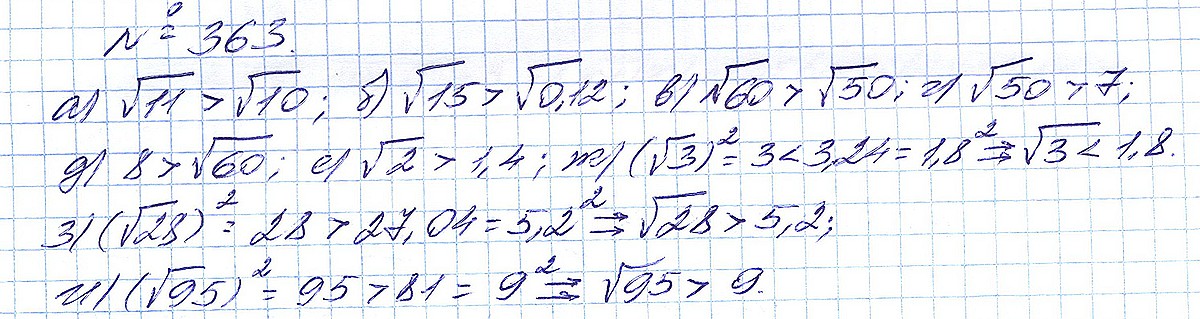 № 363.
а) √11 > √10; б) √15 > √0,12; в) √60 > √50; г) √50 > 7;
д) 8 > √60; е) √2 > 1,4; ж) (√3)² = 3 < 3,24 = 1,8² ⇒ √3 < 1,8.
з) (√28)² = 28 > 27,04 = 5,2² ⇒ √28 > 5,2;
и) (√95)² = 95 > 81 = 9² ⇒ √95 > 9.